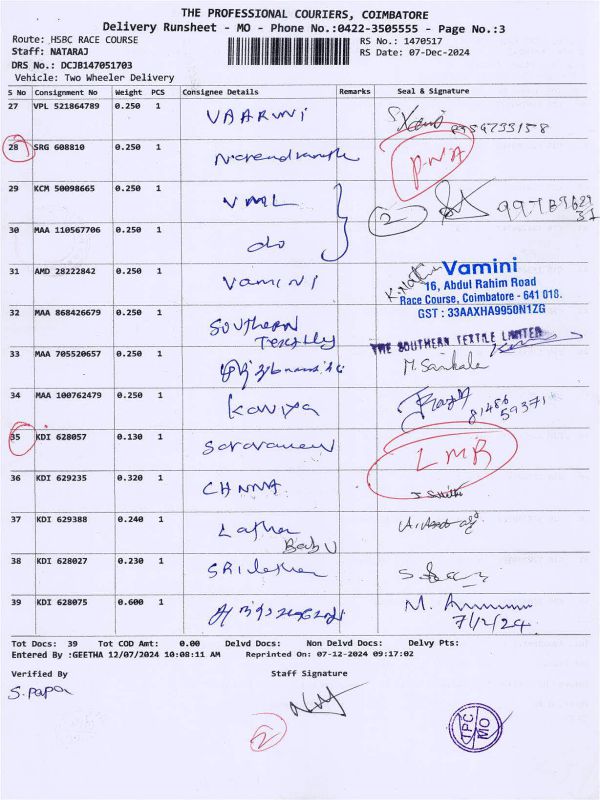 THE PROFESSIONAL COURIERS, COIMBATORE
Delivery Runsheet - MO - Phone No.:0422-3505555 - Page No.:3
Route: HSBC RACE COURSE
RS No.: 1470517
Staff: NATARAJ
RS Date: 07-Dec-2024
DRS No.: DCJB147051703
Vehicle: Two Wheeler Delivery
S No Consignment No Weight PCS Consignee Details Remarks Seal & Signature
27 VPL 521864789 0.250 1 VAARMNI
28 SRG 608810 0.250 1 Narendranath PNA
29 KCM 50098665 0.250 1 VML 2
30 MAA 110567706 0.250 1 do
31 AMD 28222842 0.250 1 Vamini
Vamini
16, Abdul Rahim Road
Race Course, Coimbatore - 641 018.
GST : 33AAXHA9950N1ZG
32 MAA 868426679 0.250 1 Southern
THE SOUTHERN TEXTILE LIMITED
33 MAA 705520657 0.250 1 M. Sarikala
34 MAA 100762479 0.250 1 Kaviya 81486
59371
35 KDI 628057 0.130 1 Saravanan LMR
36 KDI 629235 0.320 1 CHNNA
37 KDI 629388 0.240 1 Latha
Babu
38 KDI 628027 0.230 1 SRI
39 KDI 628075 0.600 1 M.
7/12/24
Tot Docs: 39 Tot COD Amt: 0.00 Delvd Docs: Non Delvd Docs: Delvy Pts:
Entered By :GEETHA 12/07/2024 10:08:11 AM Reprinted On: 07-12-2024 09:17:02
Verified By Staff Signature
S. Papa
2
TPC
MO